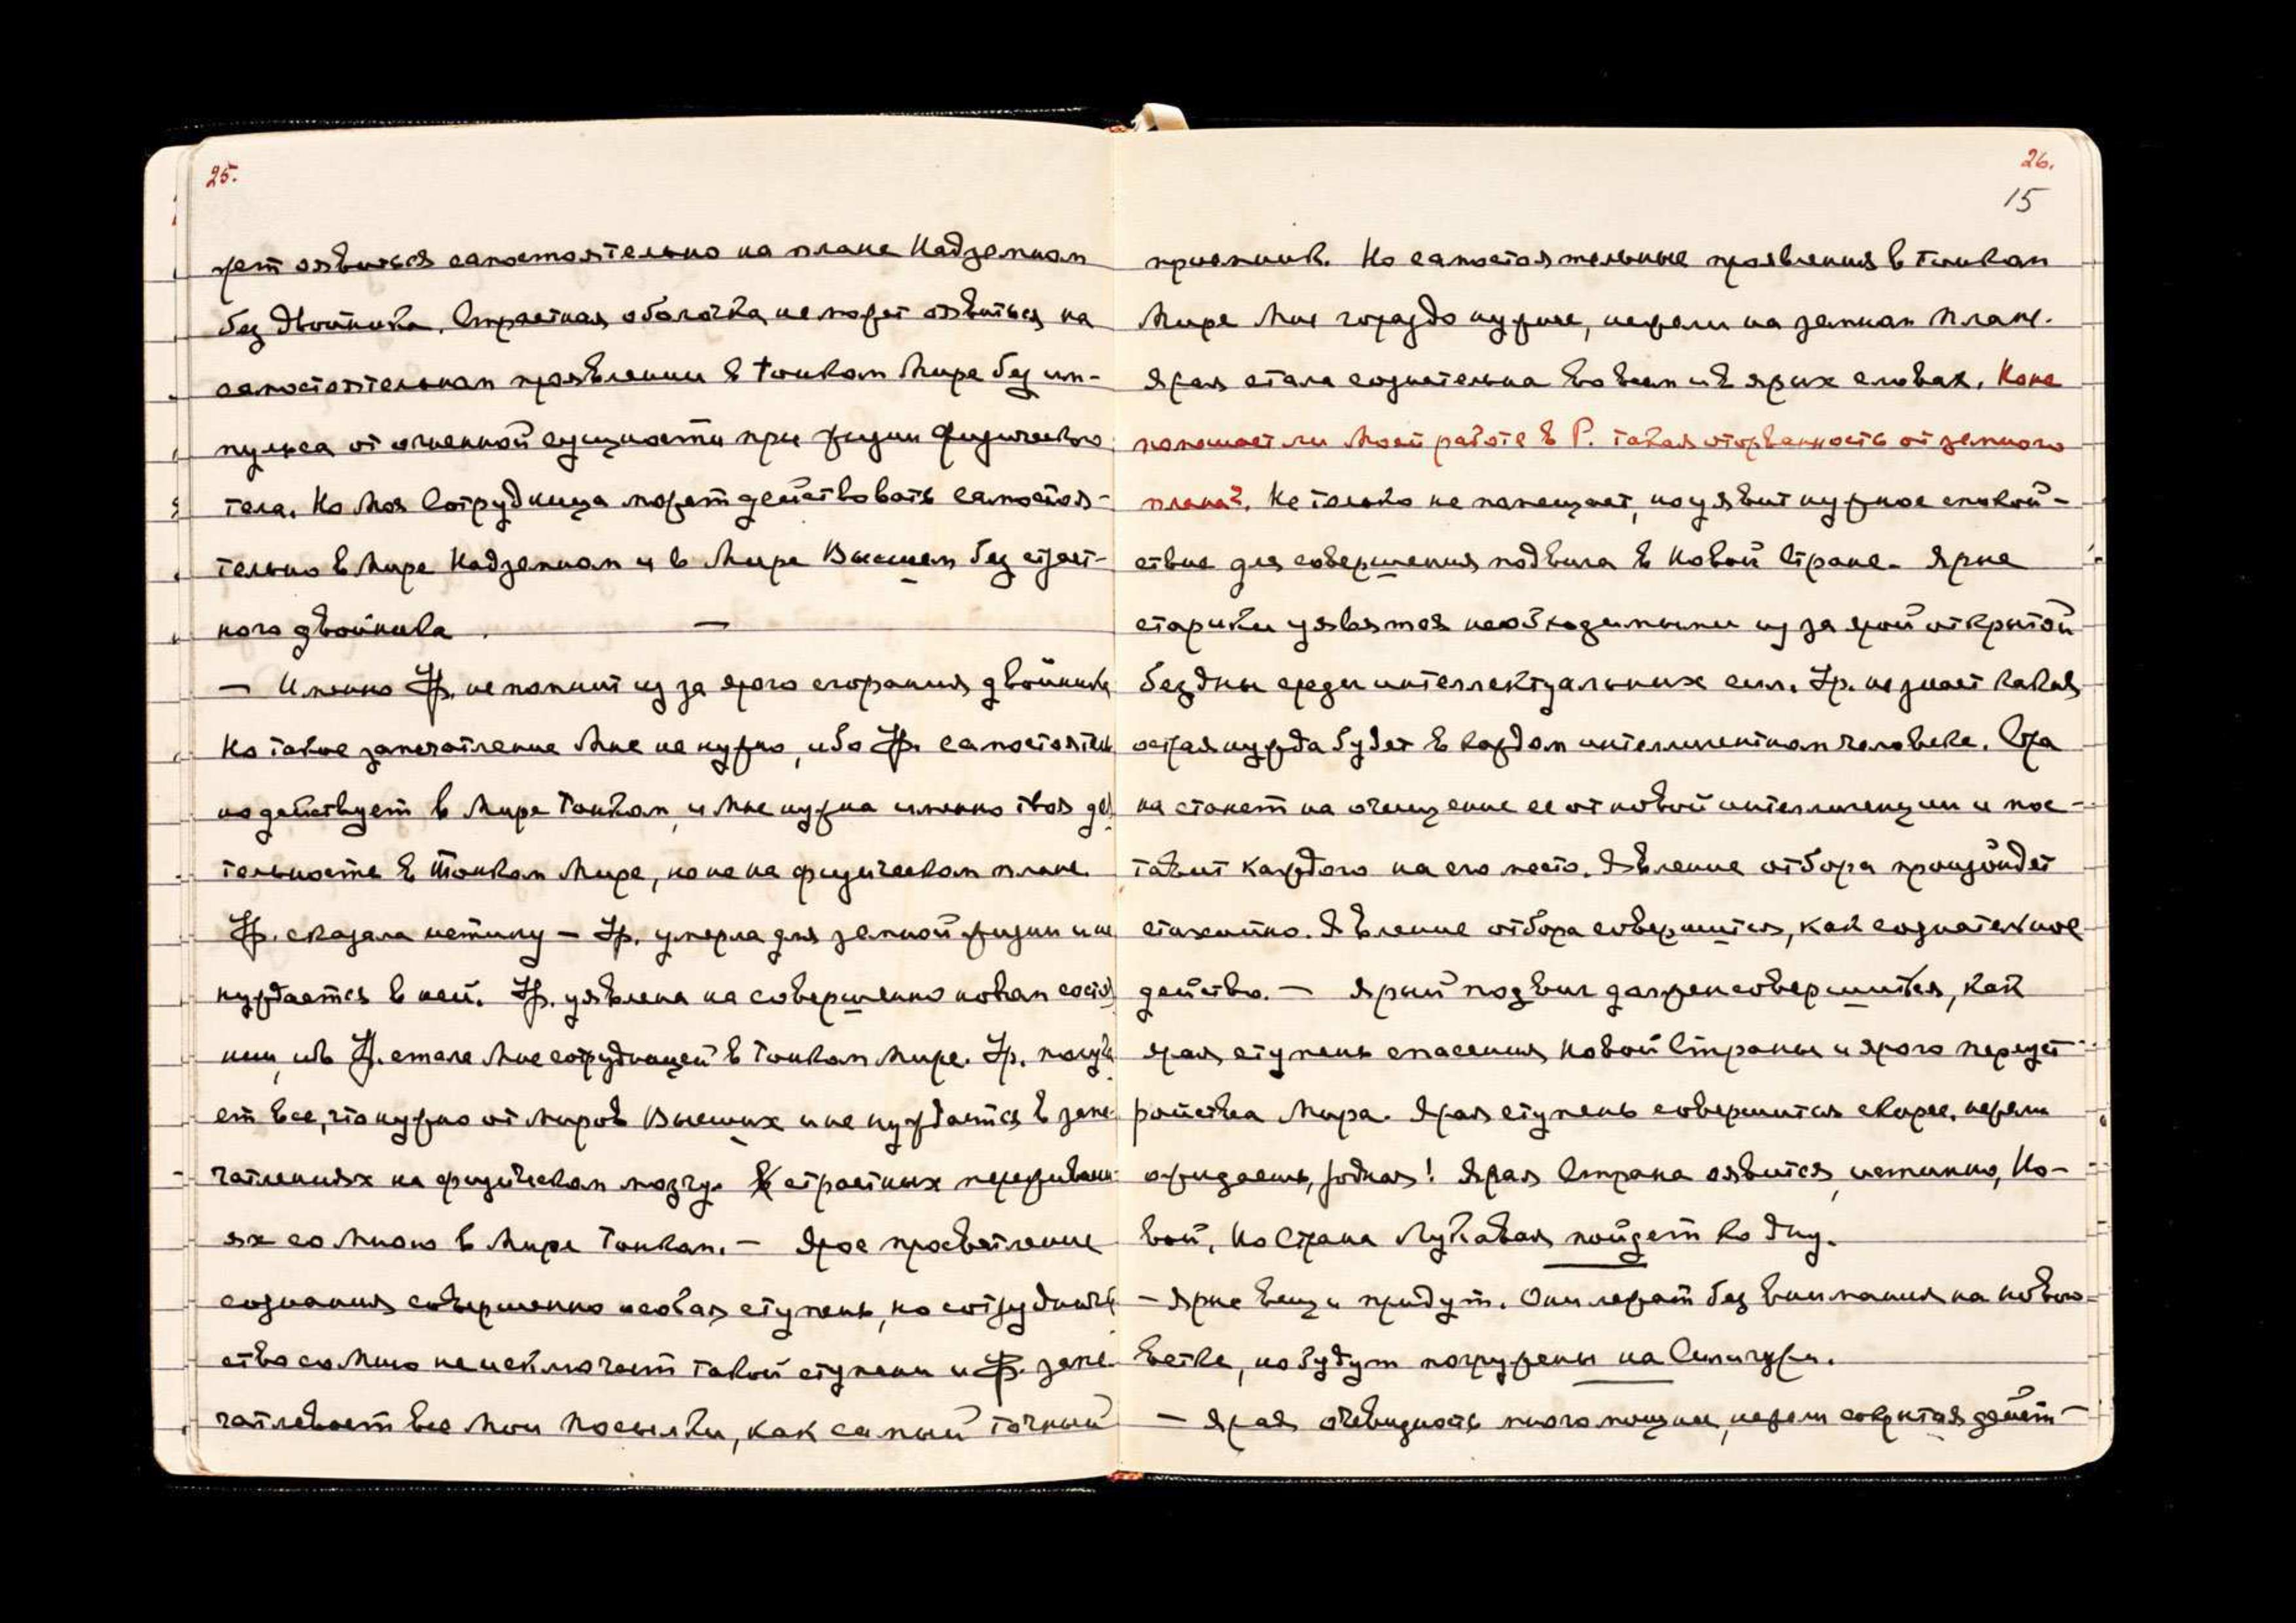 25.
жет явиться самостоятельно на плане Надземном
без двойника. Страстная оболочка не может явиться на
самостоятельном проявлении в Тонком Мире без им-
пульса от огненной сущности при жизни физического
тела. Но Моя Сотрудница может действовать самостоя-
тельно в Мире Надземном и в Мире Высшем без страст-
ного двойника. —
— Именно Ур. не помнит из за ярого сгорания двойника
Но такое запечатление Мне не нужно, ибо Ур. самостоятель
но действует в Мире Тонком, и Мне нужна именно твоя дея
тельность в Тонком Мире, но не на физическом плане.
Ур. сказала истину — Ур. умерла для земной жизни и не
нуждается в ней. Ур. уявлена на совершенно новом состоя
нии, ибо Ур. стала Мне сотрудницей в Тонком Мире. Ур. получа
ет все, что нужно от Миров Высших и не нуждается в запе-
чатлениях на физическом мозгу. В страстных переживани-
ях со Мною в Мире Тонком. — Ярое просветление
сознания совершенно особая ступень, но сотрудниче
ство со Мною не исключает такой ступени и Ур. запе-
чатлевает все Мои Посылки, как самый точный
26.
15
приемник. Но самостоятельные проявления в Тонком
Мире Мне гораздо нужнее, нежели на земном плане.
Ярая стала сознательна во всем и в ярых словах. Но не
помешает ли Моей работе в Р. такая оторванность от земного
плана? Не только не помещает, но уявит нужное спокой-
ствие для совершения подвига в Новой Стране. Ярые
старики уявятся необходимыми из за ярой открытой
бездны среди интеллектуальных сил. Ур. не знает какая
острая нужда будет в каждом интеллигентном человеке. Ура
на станет на очищение ее от новой интеллигенции и пос-
тавит каждого на его место. Явление отбора произойдет
стихийно. Явление отбора совершится, как сознательное
действо. — Ярый подвиг должен совершиться, как
ярая ступень спасения Новой Страны и ярого переуст-
ройства Мира. Ярая ступень совершится скорее, нежели
ожидаешь, родная! Ярая Страна явится, истинно, Но-
вой, но Страна Лукавая пойдет ко дну.
— Ярые вещи придут. Они лежат без внимания на
ветке, но будут погружены на Силигури.
— Ярая очевидность много мощнее, нежели сокрытая дейст-